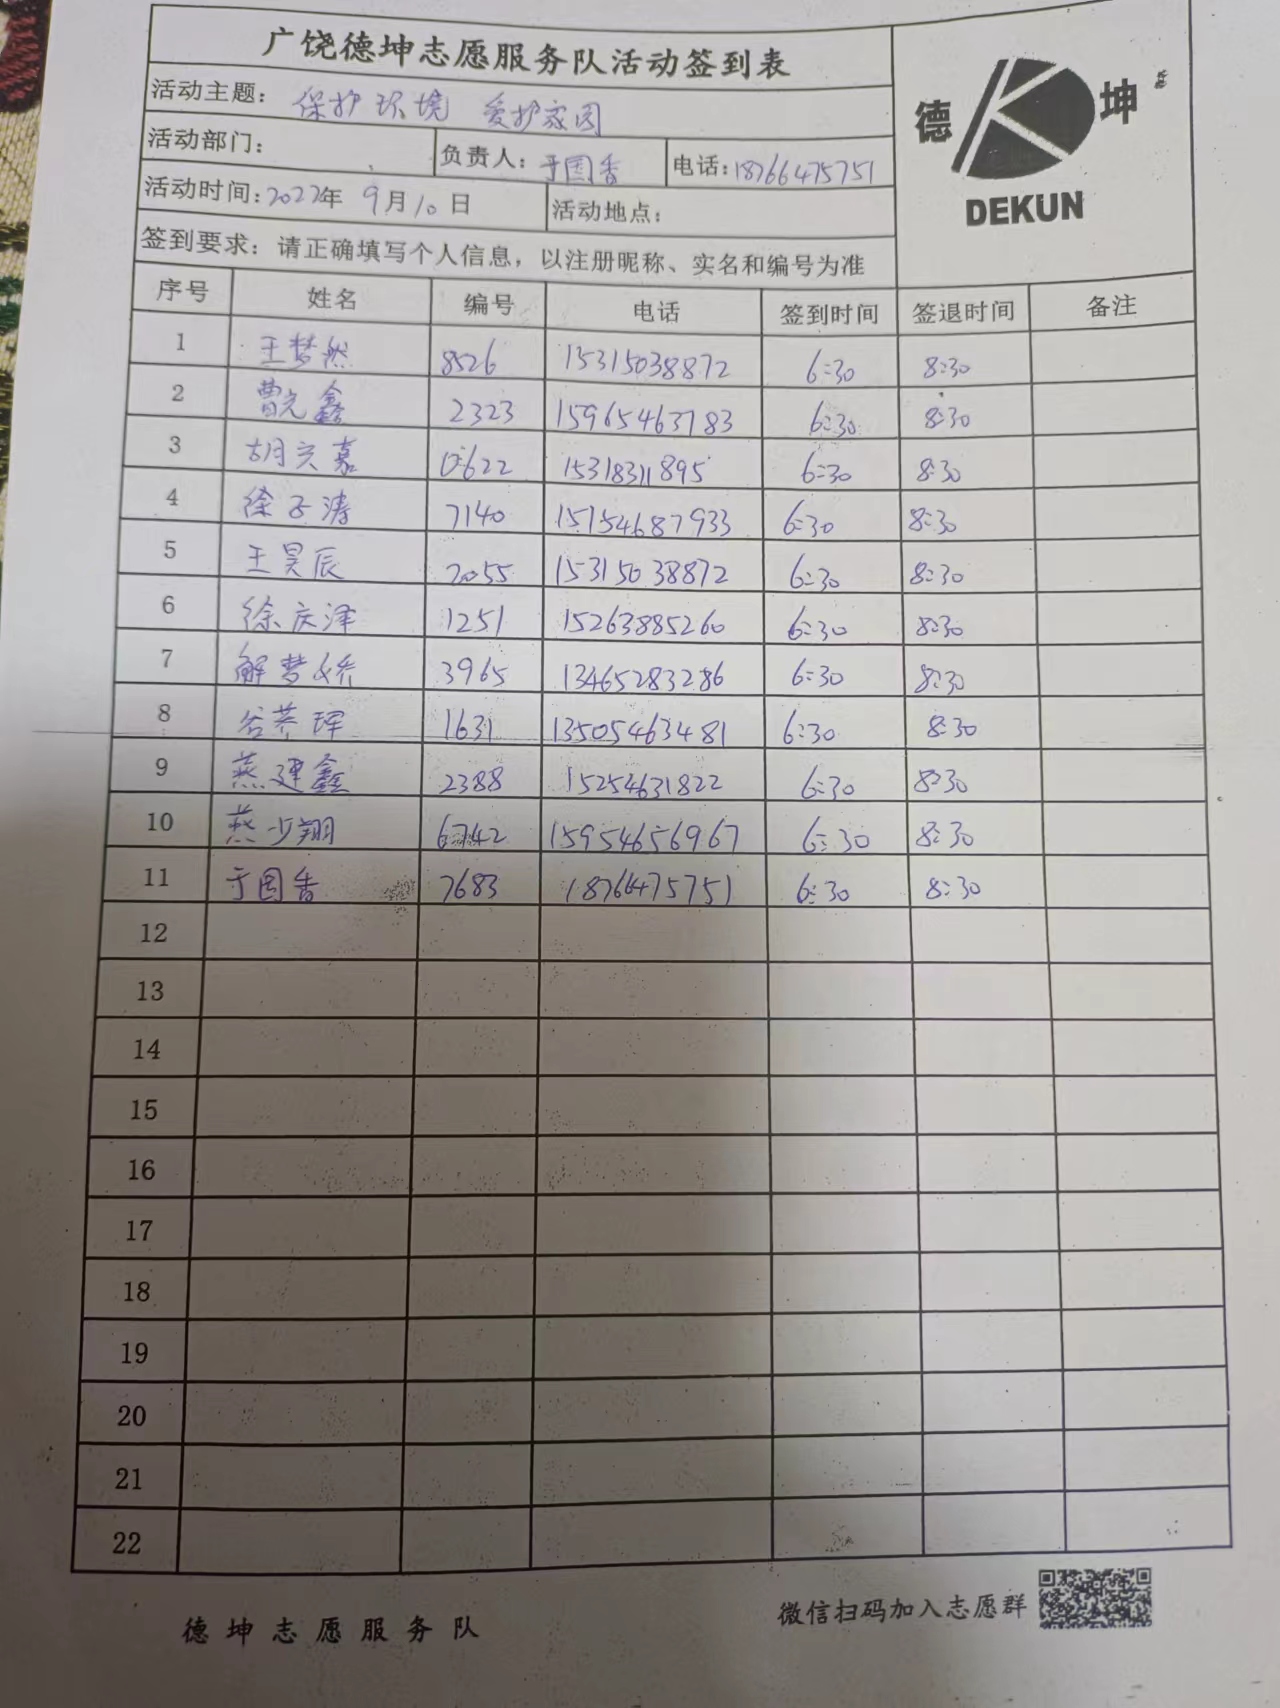 广饶德坤志愿服务队活动签到表
德 坤
DEKUN
活动主题： 保护环境 爱护家园
活动部门： 负责人：于国香 电话：18766475751
活动时间：2022年 9月10日 活动地点：
签到要求：请正确填写个人信息，以注册昵称、实名和编号为准
序号 姓名 编号 电话 签到时间 签退时间 备注
1 王梦然 8526 15315038872 6:30 8:30
2 曹元鑫 2323 15965463783 6:30 8:30
3 胡兴嘉 0622 15318311895 6:30 8:30
4 徐子涛 7140 15154687933 6:30 8:30
5 王昊辰 2055 15315038872 6:30 8:30
6 徐庆泽 1251 15263885260 6:30 8:30
7 解梦娇 3965 13465283286 6:30 8:30
8 1631 13505463481 6:30 8:30
9 燕建鑫 2388 15254631822 6:30 8:30
10 燕少翔 6742 15954656967 6:30 8:30
11 于国香 7683 18766475751 6:30 8:30
12
13
14
15
16
17
18
19
20
21
22
德坤志愿服务队 微信扫码加入志愿群